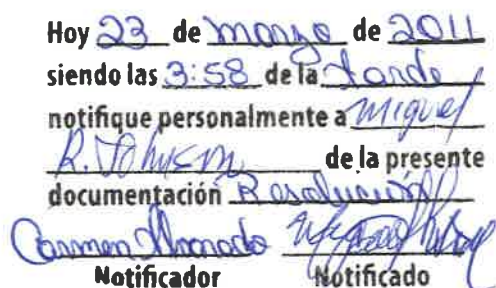 Hoy 23 de marzo de 2011
siendo las 3:58 de la tarde
notifique personalmente a Miguel
R. Johnson de la presente
documentación Resolución
Carmen
Notificador Notificado